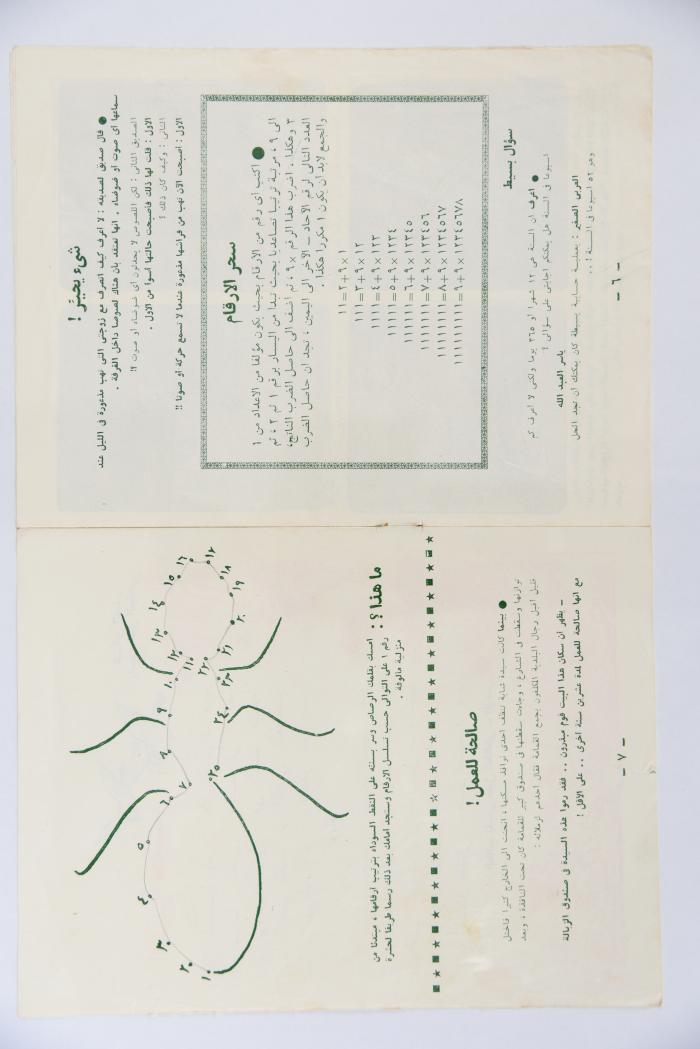 شيء يحيّر !
● قال صديق لصديقه : لا اعرف كيف اتصرف مع زوجتي التي تهب مذعورة في الليل عند
سماعها أي صوت او ضوضاء . انها تعتقد بأن هناك لصوصا داخل الغرفة .
الصديق الثاني : لكن اللصوص لا يحدثون أي ضوضاء او صوت !!
الاول : قلت لها ذلك فأصبحت حالتها أسوأ من الاول .
الثاني : وكيف كان ذلك ؟
الاول : اصبحت الآن تهب من فراشها مذعورة عندما لا تسمع حركة او صوتا !!
سحر الارقام
● اكتب أي رقم من الارقام بحيث يكون مؤلفا من الاعداد من ١
الى ٩ ، مرتبة ترتيبا تصاعديا بحيث تبدأ من اليسار برقم ١ ثم ٢ ، ثم
٣ وهكذا . اضرب هذا الرقم × ٩ ، ثم أضف الى حاصل الضرب الناتج ،
العدد التالي لرقم الآحاد ــ الآخر الى اليمين ، تجد ان حاصل الضرب
والجمع لابد ان يكون ١ مكررا هكذا .
١ × ٩ + ٢ = ١١
١٢ × ٩ + ٣ = ١١١
١٢٣ × ٩ + ٤ = ١١١١
١٢٣٤ × ٩ + ٥ = ١١١١١
١٢٣٤٥ × ٩ + ٦ = ١١١١١١
١٢٣٤٥٦ × ٩ + ٧ = ١١١١١١١
١٢٣٤٥٦٧ × ٩ + ٨ = ١١١١١١١١
١٢٣٤٥٦٧٨ × ٩ + ٩ = ١١١١١١١١١
سؤال بسيط
● اعرف ان السنة هي ١٢ شهرا او ٣٦٥ يوما ولكني لا اعرف كم
اسبوعا في السنة هل يمكنكم اجابتي على سؤالي ؟
ياسر العبد الله
العربي الصغير : بعملية حسابية بسيطة كان يمكنك ان تجد الحل
وهو ٥٢ اسبوعا في السنة ! ..
- ٦ -
١
٢
٣
٤
٥
٦
٧
٨
٩
١٠
١١
١٢
١٣
١٤
١٥
١٦
١٧
١٨
١٩
٢٠
٢١
٢٢
٢٣
٢٤
٢٥
ما هذا ؟ :
امسك بقلمك الرصاص وسر بسنته على النقط السوداء بترتيب ارقامها ، مبتدئا من
رقم ١ على التوالي حسب تسلسل الارقام وستجد امامك بعد ذلك رسما طريفا لحشرة
منزلية مألوفة .
صالحة للعمل !
● بينما كانت سيدة شابة تنظف احدى نوافذ مسكنها ، انحنت الى الخارج كثيرا فاختل
توازنها وسقطت في الشارع ، وجاءت سقطتها في صندوق كبير للقمامة كان تحت النافذة ، وبعد
قليل اقبل رجال البلدية المكلفون بجمع القمامة فقال احدهم لزملائه :
ــ يظهر ان سكان هذا البيت قوم مبذرون .. فقد رموا هذه السيدة في صندوق الزبالة
مع انها صالحة للعمل لمدة عشرين سنة اخرى .. على الاقل !
- ٧ -